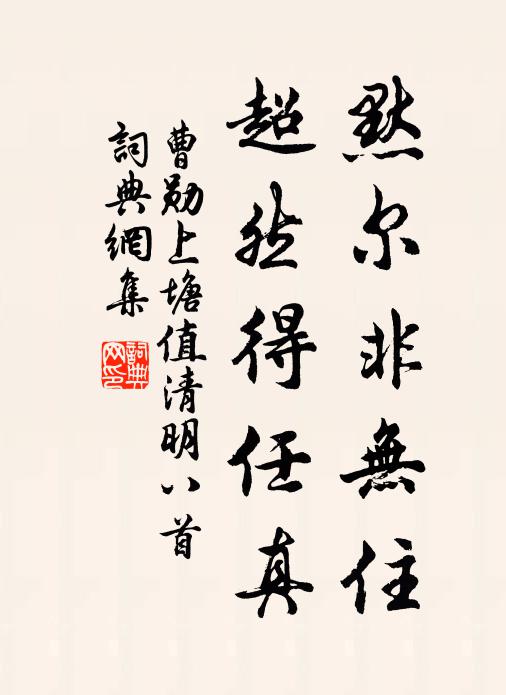 默尔非無住
超然得任真
曹勛上塘值清明八首
詞典網集
詞典網印